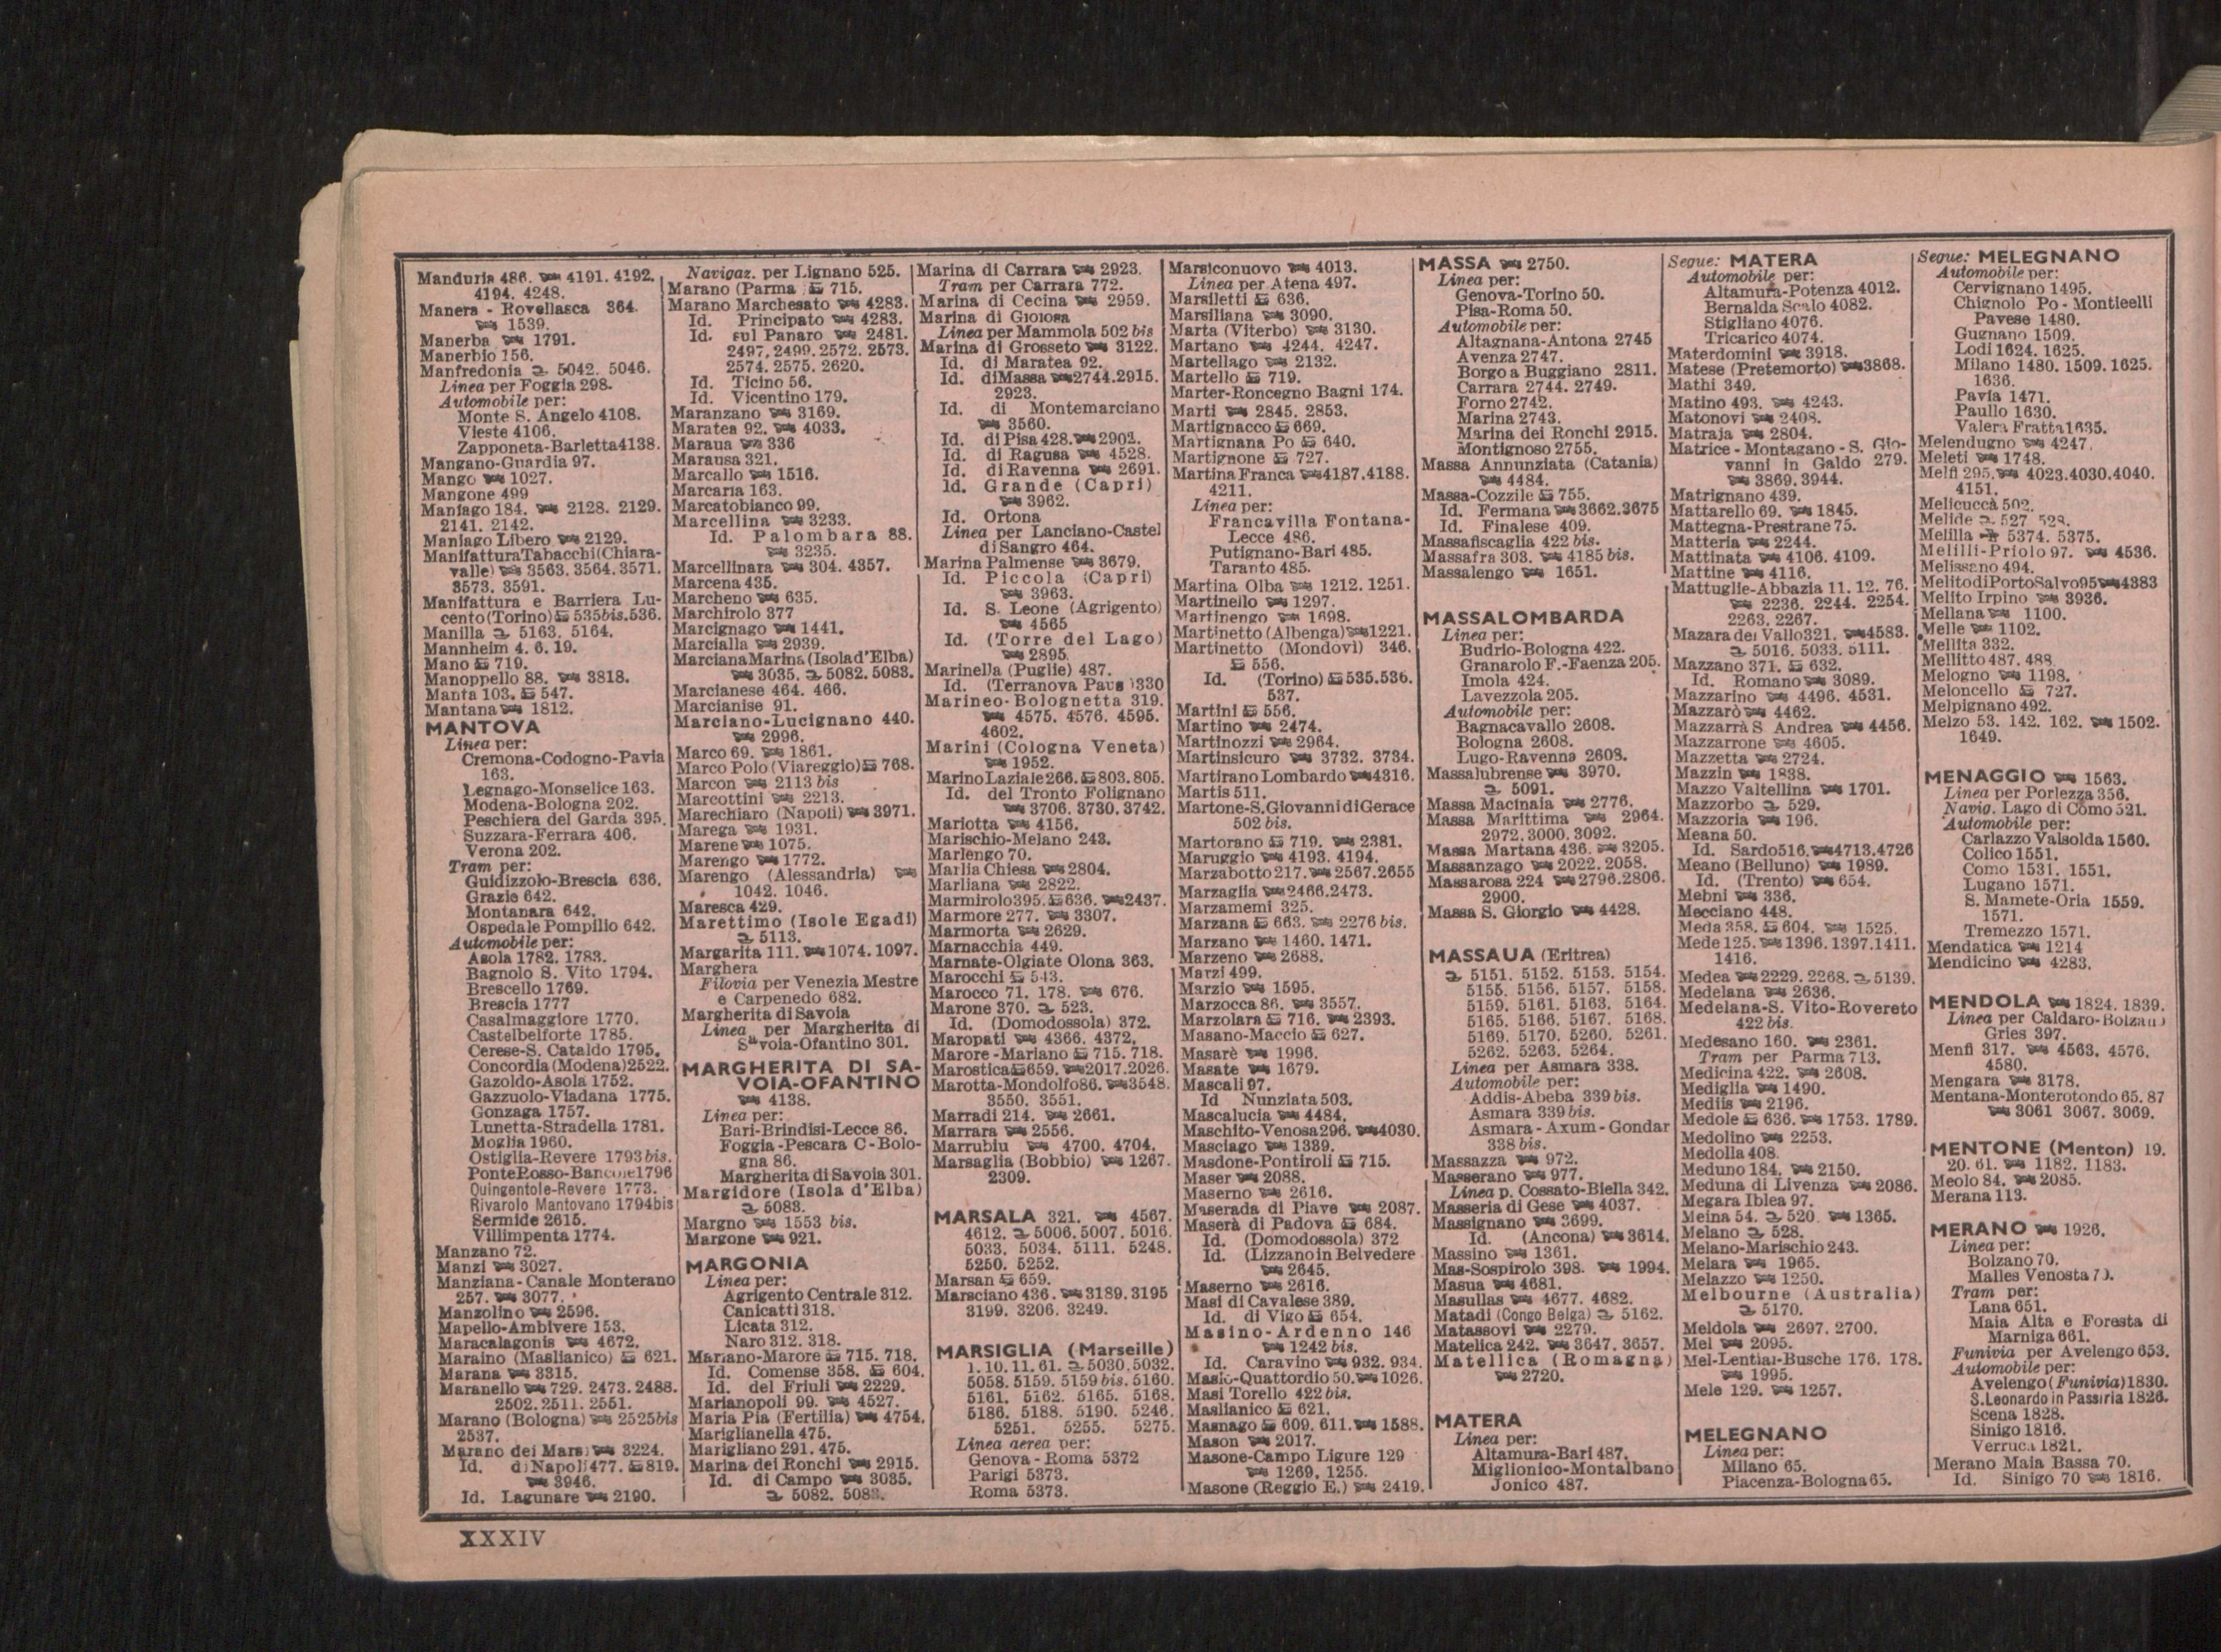 Manduria 486. 4191. 4192.
4194. 4248.
Manera - Rovellasca 364.
1539.
Manerba 1791.
Manerbio 156.
Manfredonia 5042. 5046.
Linea per Foggia 298.
Automobile per:
Monte S. Angelo 4108.
Vieste 4106.
Zapponeta-Barletta 4138.
Mangano-Guardia 97.
Mango 1027.
Mangone 499
Maniago 184. 2128. 2129.
2141. 2142.
Maniago Libero 2129.
Manifattura Tabacchi (Chiara-
valle) 3563. 3564. 3571.
3573. 3591.
Manifattura e Barriera Lu-
cento (Torino) 535 bis. 536.
Manilla 5163. 5164.
Mannheim 4. 6. 19.
Mano 719.
Manoppello 88. 3818.
Manta 103. 547.
Mantana 1812.
MANTOVA
Linea per:
Cremona-Codogno-Pavia
163.
Legnago-Monselice 163.
Modena-Bologna 202.
Peschiera del Garda 395.
Suzzara-Ferrara 406.
Verona 202.
Tram per:
Guidizzolo-Brescia 636.
Grazie 642.
Montanara 642.
Ospedale Pompilio 642.
Automobile per:
Asola 1782. 1783.
Bagnolo S. Vito 1794.
Brescello 1769.
Brescia 1777
Casalmaggiore 1770.
Castelbelforte 1785.
Cerese-S. Cataldo 1795.
Concordia (Modena) 2522.
Gazoldo-Asola 1752.
Gazzuolo-Viadana 1775.
Gonzaga 1757.
Lunetta-Stradella 1781.
Moglia 1960.
Ostiglia-Revere 1793 bis.
Ponte Rosso-Bancole 1796
Quingentole-Revere 1773.
Rivarolo Mantovano 1794 bis
Sermide 2615.
Villimpenta 1774.
Manzano 72.
Manzi 3027.
Manziana - Canale Monterano
257. 3077.
Manzolino 2596.
Mapello-Ambivere 153.
Maracalagonis 4672.
Maraino (Maslianico) 621.
Marana 3315.
Maranello 729. 2473. 2488.
2502. 2511. 2551.
Marano (Bologna) 2525 bis
2537.
Marano dei Marsi 3224.
Id. di Napoli 477. 819.
3946.
Id. Lagunare 2190.
Navigaz. per Lignano 525.
Marano (Parma 715.
Marano Marchesato 4283.
Id. Principato 4283.
Id. sul Panaro 2481.
2497. 2499. 2572. 2573.
2574. 2575. 2620.
Id. Ticino 56.
Id. Vicentino 179.
Maranzano 3169.
Maratea 92. 4033.
Maraua 336
Marausa 321.
Marcallo 1516.
Marcaria 163.
Marcatobianco 99.
Marcellina 3233.
Id. Palombara 88.
3235.
Marcellinara 304. 4357.
Marcena 435.
Marcheno 635.
Marchirolo 377
Marcignago 1441.
Marcialla 2939.
Marciana Marina (Isola d'Elba)
3035. 5082. 5083.
Marcianese 464. 466.
Marcianise 91.
Marciano-Lucignano 440.
2996.
Marco 69. 1861.
Marco Polo (Viareggio) 768.
Marcon 2113 bis
Marcottini 2213.
Marechiaro (Napoli) 3971.
Marega 1931.
Marene 1075.
Marengo 1772.
Marengo (Alessandria)
1042. 1046.
Maresca 429.
Marettimo (Isole Egadi)
5113.
Margarita 111. 1074. 1097.
Marghera
Filovia per Venezia Mestre
e Carpenedo 682.
Margherita di Savoia
Linea per Margherita di
Savoia-Ofantino 301.
MARGHERITA DI SA-
VOIA-OFANTINO
4138.
Linea per:
Bari-Brindisi-Lecce 86.
Foggia-Pescara C-Bolo-
gna 86.
Margherita di Savoia 301.
Margidore (Isola d'Elba)
5083.
Margno 1553 bis.
Margone 921.
MARGONIA
Linea per:
Agrigento Centrale 312.
Canicattì 318.
Licata 312.
Naro 312. 318.
Mariano-Marore 715. 718.
Id. Comense 358. 604.
Id. del Friuli 2229.
Marianopoli 99. 4527.
Maria Pia (Fertilia) 4754.
Mariglianella 475.
Marigliano 291. 475.
Marina dei Ronchi 2915.
Id. di Campo 3035.
5082. 5083.
Marina di Carrara 2923.
Tram per Carrara 772.
Marina di Cecina 2959.
Marina di Gioiosa
Linea per Mammola 502 bis
Marina di Grosseto 3122.
Id. di Maratea 92.
Id. di Massa 2744. 2915.
2923.
Id. di Montemarciano
3560.
Id. di Pisa 428. 2902.
Id. di Ragusa 4528.
Id. di Ravenna 2691.
Id. Grande (Capri)
3962.
Id. Ortona
Linea per Lanciano-Castel
di Sangro 464.
Marina Palmense 3679.
Id. Piccola (Capri)
3963.
Id. S. Leone (Agrigento)
4565
Id. (Torre del Lago)
2895.
Marinella (Puglie) 487.
Id. (Terranova Paus.) 330
Marineo-Bolognetta 319.
4575. 4576. 4595.
4602.
Marini (Cologna Veneta)
1952.
Marino Laziale 266. 803. 805.
Id. del Tronto Folignano
3706. 3730. 3742.
Mariotta 4156.
Marischio-Melano 243.
Marlengo 70.
Marlia Chiesa 2804.
Marliana 2822.
Marmirolo 395. 636. 2437.
Marmore 277. 3307.
Marmorta 2629.
Marnacchia 449.
Marnate-Olgiate Olona 363.
Marocchi 543.
Marocco 71. 178. 676.
Marone 370. 523.
Id. (Domodossola) 372.
Maropati 4366. 4372.
Marore-Mariano 715. 718.
Marostica 659. 2017. 2026.
Marotta-Mondolfo 86. 3548.
3550. 3551.
Marradi 214. 2661.
Marrara 2556.
Marrubiu 4700. 4704.
Marsaglia (Bobbio) 1267.
2309.
MARSALA 321. 4567.
4612. 5006. 5007. 5016.
5033. 5034. 5111. 5248.
5250. 5252.
Marsan 659.
Marsciano 436. 3189. 3195
3199. 3206. 3249.
MARSIGLIA (Marseille)
1. 10. 11. 61. 5030. 5032.
5058. 5159. 5159 bis. 5160.
5161. 5162. 5165. 5168.
5186. 5188. 5190. 5246.
5251. 5255. 5275.
Linea aerea per:
Genova - Roma 5372
Parigi 5373.
Roma 5373.
Marsiconuovo 4013.
Linea per Atena 497.
Marsiletti 636.
Marsiliana 3090.
Marta (Viterbo) 3130.
Martano 4244. 4247.
Martellago 2132.
Martello 719.
Marter-Roncegno Bagni 174.
Marti 2845. 2853.
Martignacco 669.
Martignana Po 640.
Martignone 727.
Martina Franca 4187. 4188.
4211.
Linea per:
Francavilla Fontana-
Lecce 486.
Putignano-Bari 485.
Taranto 485.
Martina Olba 1212. 1251.
Martinello 1297.
Martinengo 1698.
Martinetto (Albenga) 1221.
Martinetto (Mondovì) 346.
556.
Id. (Torino) 535. 536.
537.
Martini 556.
Martino 2474.
Martinozzi 2964.
Martinsicuro 3732. 3734.
Martirano Lombardo 4316.
Martis 511.
Martone-S. Giovanni di Gerace
502 bis.
Martorano 719. 2381.
Maruggio 4193. 4194.
Marzabotto 217. 2567. 2655
Marzaglia 2466. 2473.
Marzamemi 325.
Marzana 663. 2276 bis.
Marzano 1460. 1471.
Marzeno 2688.
Marzi 499.
Marzio 1595.
Marzocca 86. 3557.
Marzolara 716. 2393.
Masano-Maccio 627.
Masarè 1996.
Masate 1679.
Mascali 97.
Id Nunziata 503.
Mascalucia 4484.
Maschito-Venosa 296. 4030.
Masciago 1339.
Masdone-Pontiroli 715.
Maser 2088.
Maserno 2616.
Maserada di Piave 2087.
Maserà di Padova 684.
Id. (Domodossola) 372
Id. (Lizzano in Belvedere
2645.
Maserno 2616.
Masi di Cavalese 389.
Id. di Vigo 654.
Masino-Ardenno 146
1242 bis.
Id. Caravino 932. 934.
Masio-Quattordio 50. 1026.
Masi Torello 422 bis.
Maslianico 621.
Masnago 609. 611. 1588.
Mason 2017.
Masone-Campo Ligure 129
1269. 1255.
Masone (Reggio E.) 2419.
MASSA 2750.
Linea per:
Genova-Torino 50.
Pisa-Roma 50.
Automobile per:
Altagnana-Antona 2745
Avenza 2747.
Borgo a Buggiano 2811.
Carrara 2744. 2749.
Forno 2742.
Marina 2743.
Marina dei Ronchi 2915.
Montignoso 2755.
Massa Annunziata (Catania)
4484.
Massa-Cozzile 755.
Id. Fermana 3662. 3675
Id. Finalese 409.
Massafiscaglia 422 bis.
Massafra 303. 4185 bis.
Massalengo 1651.
MASSALOMBARDA
Linea per:
Budrio-Bologna 422.
Granarolo F.-Faenza 205.
Imola 424.
Lavezzola 205.
Automobile per:
Bagnacavallo 2608.
Bologna 2608.
Lugo-Ravenna 2608.
Massalubrense 3970.
5091.
Massa Macinaia 2776.
Massa Marittima 2964.
2972. 3000. 3092.
Massa Martana 436. 3205.
Massanzago 2022. 2058.
Massarosa 224 2796. 2806.
2900.
Massa S. Giorgio 4428.
MASSAUA (Eritrea)
5151. 5152. 5153. 5154.
5155. 5156. 5157. 5158.
5159. 5161. 5163. 5164.
5165. 5166. 5167. 5168.
5169. 5170. 5260. 5261.
5262. 5263. 5264.
Linea per Asmara 338.
Automobile per:
Addis-Abeba 339 bis.
Asmara 339 bis.
Asmara - Axum - Gondar
338 bis.
Massazza 972.
Masserano 977.
Linea p. Cossato-Biella 342.
Masseria di Gese 4037.
Massignano 3699.
Id. (Ancona) 3614.
Massino 1361.
Mas-Sospirolo 398. 1994.
Masua 4681.
Masullas 4677. 4682.
Matadi (Congo Belga) 5162.
Matassovi 2279.
Matelica 242. 3647. 3657.
Matellica (Romagna)
2720.
MATERA
Linea per:
Altamura-Bari 487.
Miglionico-Montalbano
Jonico 487.
Segue: MATERA
Automobile per:
Altamura-Potenza 4012.
Bernalda Scalo 4082.
Stigliano 4076.
Tricarico 4074.
Materdomini 3918.
Matese (Pretemorto) 3868.
Mathi 349.
Matino 493. 4243.
Matonovi 2408.
Matraja 2804.
Matrice - Montagano - S. Gio-
vanni in Galdo 279.
3869. 3944.
Matrignano 439.
Mattarello 69. 1845.
Mattegna-Prestrane 75.
Matteria 2244.
Mattinata 4106. 4109.
Mattine 4116.
Mattuglie-Abbazia 11. 12. 76.
2236. 2244. 2254.
2263. 2267.
Mazara del Vallo 321. 4583.
5016. 5033. 5111.
Mazzano 371. 632.
Id. Romano 3089.
Mazzarino 4496. 4531.
Mazzarò 4462.
Mazzarrà S Andrea 4456.
Mazzarrone 4605.
Mazzetta 2724.
Mazzin 1838.
Mazzo Valtellina 1701.
Mazzorbo 529.
Mazzoria 196.
Meana 50.
Id. Sardo 516. 4713. 4726
Meano (Belluno) 1989.
Id. (Trento) 654.
Mebni 336.
Mecciano 448.
Meda 358. 604. 1525.
Mede 125. 1396. 1397. 1411.
1416.
Medea 2229. 2268. 5139.
Medelana 2636.
Medelana-S. Vito-Rovereto
422 bis.
Medesano 160. 2361.
Tram per Parma 713.
Medicina 422. 2608.
Mediglia 1490.
Mediis 2196.
Medole 636. 1753. 1789.
Medolino 2253.
Medolla 408.
Meduno 184. 2150.
Meduna di Livenza 2086.
Megara Iblea 97.
Meina 54. 520. 1365.
Melano 528.
Melano-Marischio 243.
Melara 1965.
Melazzo 1250.
Melbourne (Australia)
5170.
Meldola 2697. 2700.
Mel 2095.
Mel-Lentiai-Busche 176. 178.
1995.
Mele 129. 1257.
MELEGNANO
Linea per:
Milano 65.
Piacenza-Bologna 65.
Segue: MELEGNANO
Automobile per:
Cervignano 1495.
Chignolo Po - Monticelli
Pavese 1480.
Gugnano 1509.
Lodi 1624. 1625.
Milano 1480. 1509. 1625.
1636.
Pavia 1471.
Paullo 1630.
Valera Fratta 1635.
Melendugno 4247.
Meleti 1748.
Melfi 295. 4023. 4030. 4040.
4151.
Melicuccà 502.
Melide 527 528.
Melilla 5374. 5375.
Melilli-Priolo 97. 4536.
Melissano 494.
Melito di Porto Salvo 95 4383
Melito Irpino 3936.
Mellana 1100.
Melle 1102.
Mellita 332.
Mellitto 487. 488
Melogno 1198.
Meloncello 727.
Melpignano 492.
Melzo 53. 142. 162. 1502.
1649.
MENAGGIO 1563.
Linea per Porlezza 356.
Navig. Lago di Como 521.
Automobile per:
Carlazzo Valsolda 1560.
Colico 1551.
Como 1531. 1551.
Lugano 1571.
S. Mamete-Oria 1559.
1571.
Tremezzo 1571.
Mendatica 1214
Mendicino 4283.
MENDOLA 1824. 1839.
Linea per Caldaro-Bolzano
Gries 397.
Menfi 317. 4563. 4576.
4580.
Mengara 3178.
Mentana-Monterotondo 65. 87
3061 3067. 3069.
MENTONE (Menton) 19.
20. 61. 1182. 1183.
Meolo 84. 2085.
Merana 113.
MERANO 1926.
Linea per:
Bolzano 70.
Malles Venosta 70.
Tram per:
Lana 651.
Maia Alta e Foresta di
Marniga 661.
Funivia per Avelengo 653.
Automobile per:
Avelengo (Funivia) 1830.
S. Leonardo in Passiria 1826.
Scena 1828.
Sinigo 1816.
Verruca 1821.
Merano Maia Bassa 70.
Id. Sinigo 70 1816.
XXXIV